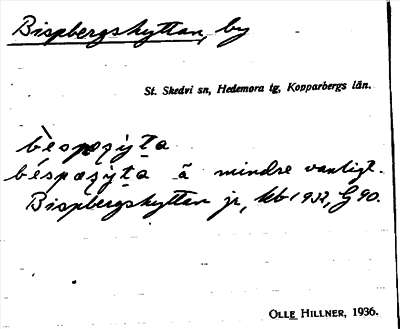 Bispbergshyttan, by
St. Skedvi sn, Hedemora tg, Kopparbergs län.
bèspæʂyta
béspæʂyta ä mindre vanligt.
Bispbergshyttan jr, kb 1932, G 90.
OLLE HILLNER, 1936.